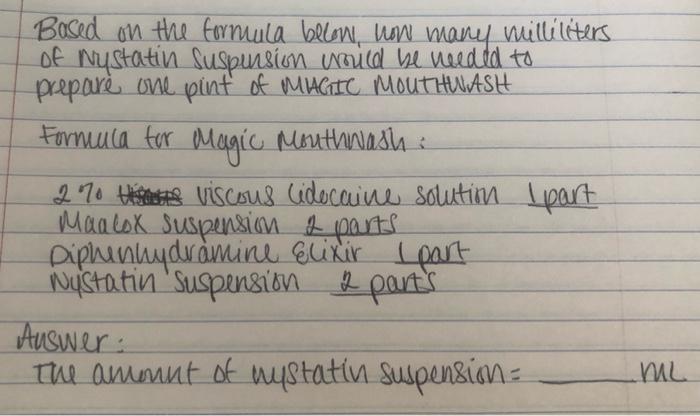 Based on the formula below, how many milliliters
of Nystatin Suspension would be needed to
prepare one pint of MAGIC MOUTHWASH
Formula for Magic Mouthwash :
2% viscous lidocaine solution 1 part
Maalox Suspension 2 parts
Diphenhydramine Elixir 1 part
Nystatin Suspension 2 parts
Answer :
The amount of nystatin suspension = ______ mL